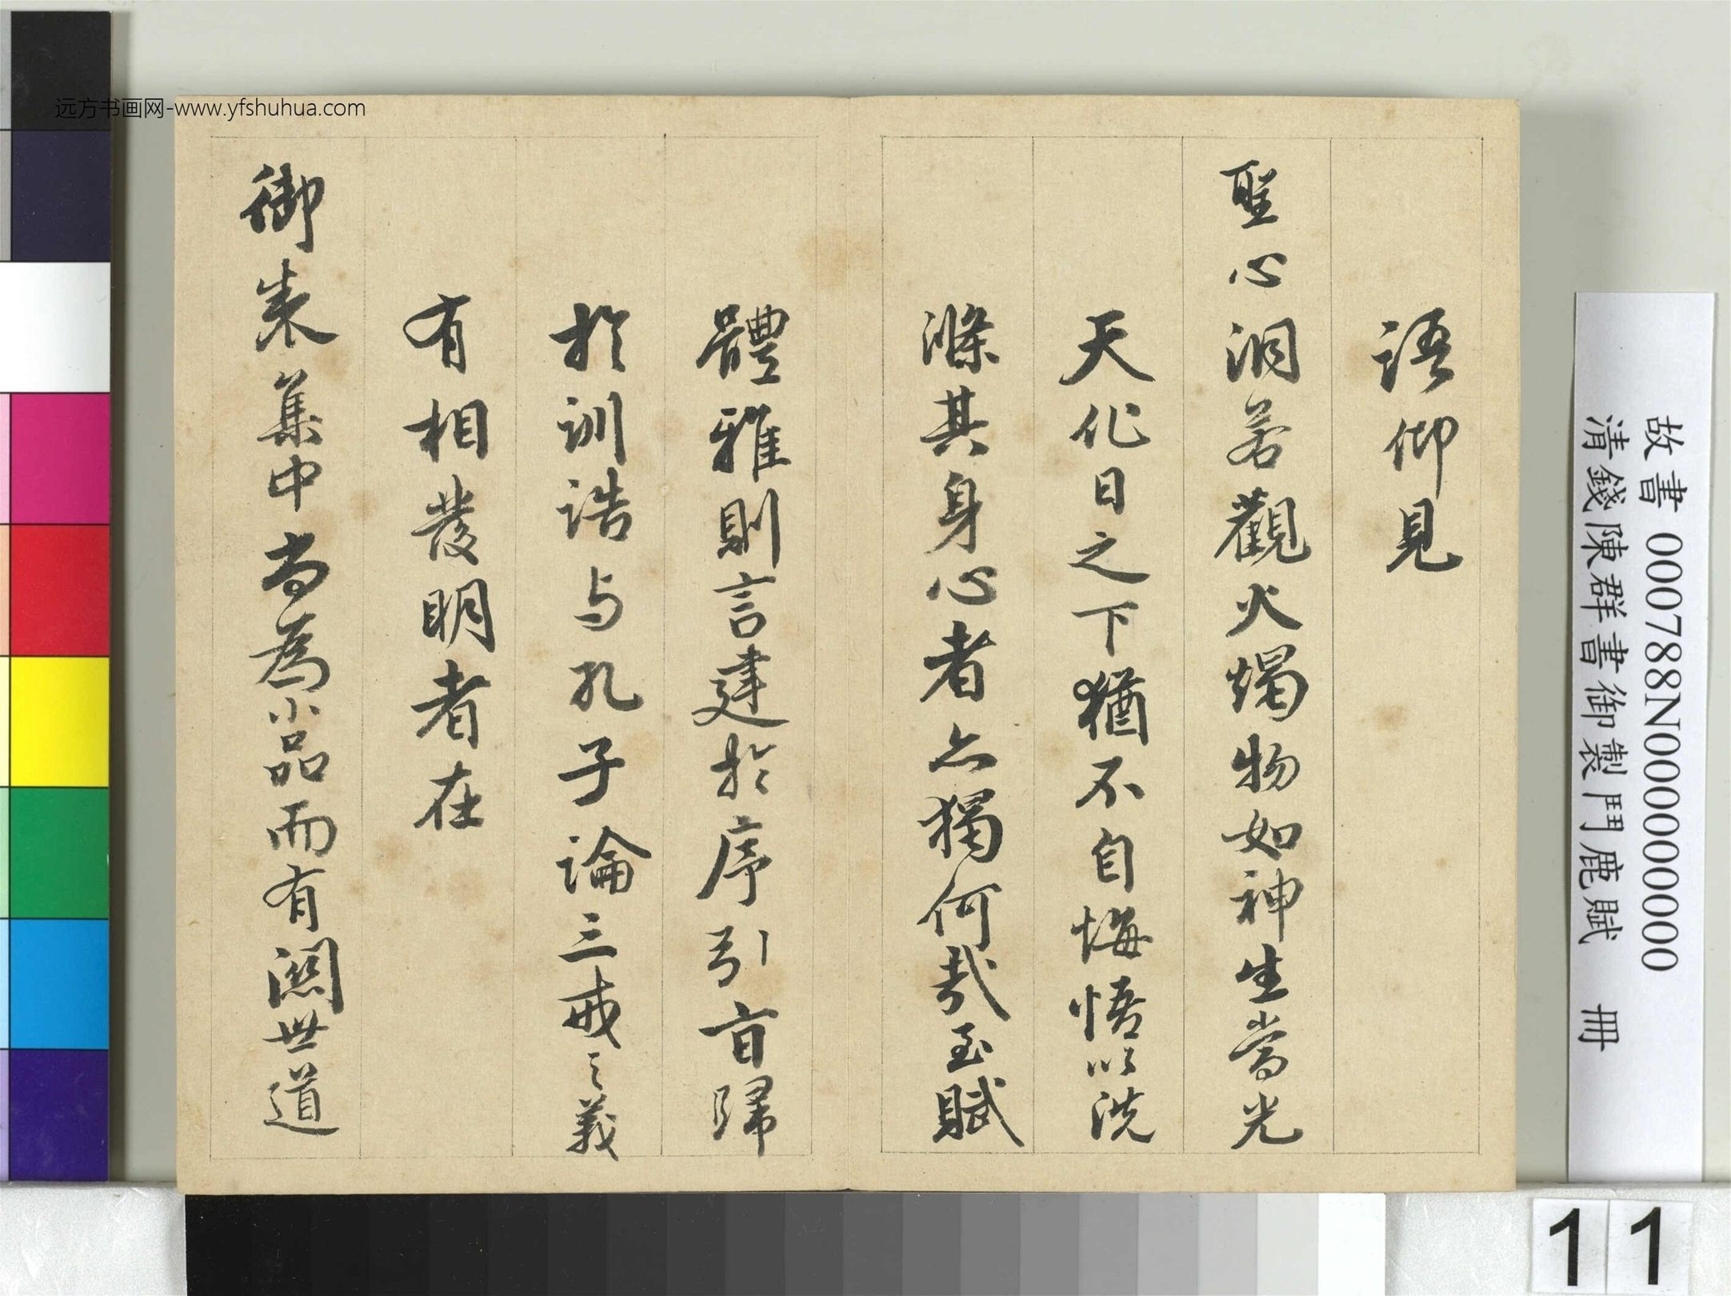 远方书画网-www.yfshuhua.com
語仰見
聖心洞若觀火燭物如神生當光
天化日之下猶不自悔悟以洗
滌其身心者亦獨何哉至賦
體雅則言建於序引旨歸
於訓誥与孔子論三戒之義
有相發明者在
御集中尚為小品而有關世道
故書 000788N000000000
清錢陳群書御製鬥鹿賦 冊
11